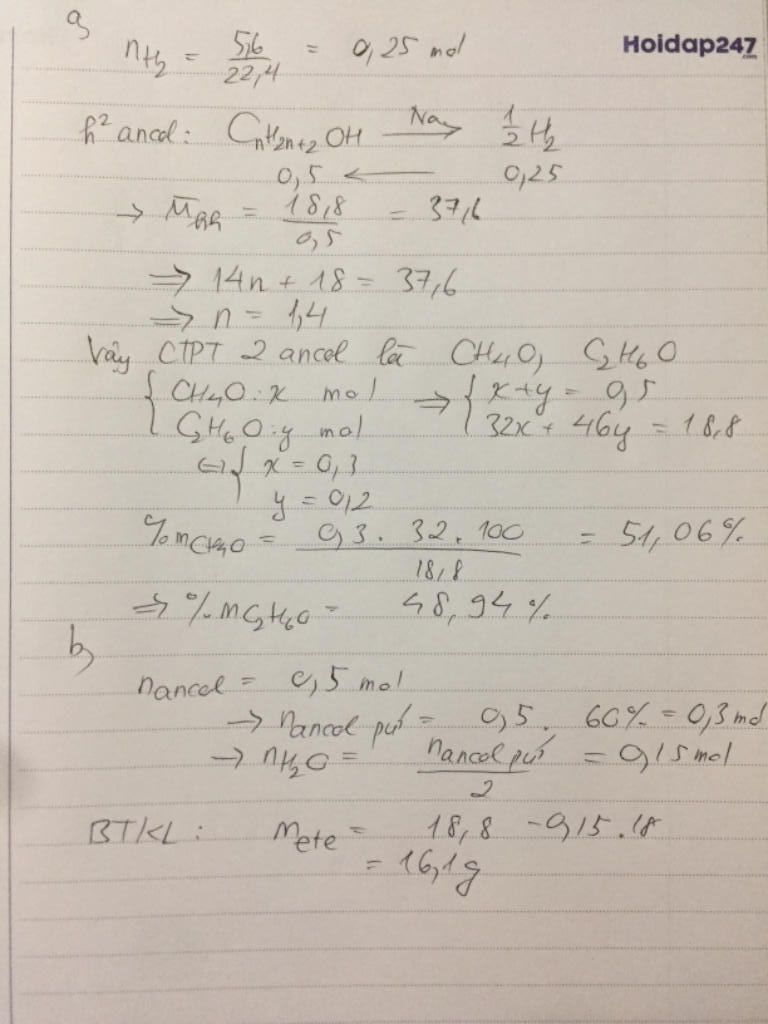 a)
nH₂ = 5,6/22,4 = 0,25 mol
Hoidap247.com
h² ancol: CnH2n+2OH —Na→ 1/2 H₂
0,5 ← 0,25
→ M̅ = 18,8/0,5 = 37,6
⇒ 14n + 18 = 37,6
⇒ n = 1,4
Vậy CTPT 2 ancol là CH₄O, C₂H₆O
{ CH₄O: x mol ⇒ { x + y = 0,5
C₂H₆O: y mol 32x + 46y = 18,8
⇔ { x = 0,3
y = 0,2
%mCH₄O = 0,3 . 32 . 100 / 18,8 = 51,06%
⇒ %mC₂H₆O = 48,94%
b)
nancol = 0,5 mol
→ nancol pứ = 0,5 . 60% = 0,3 mol
→ nH₂O = nancol pứ / 2 = 0,15 mol
BTKL: mete = 18,8 - 0,15 . 18
= 16,1g